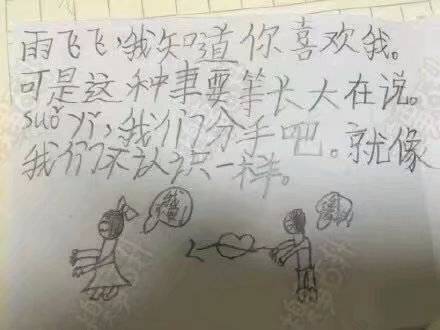 雨飞飞，我知道你喜欢我。
可是这种事要等长大在说。
suǒ yǐ，我们分手吧。就像
我们不认识一样。